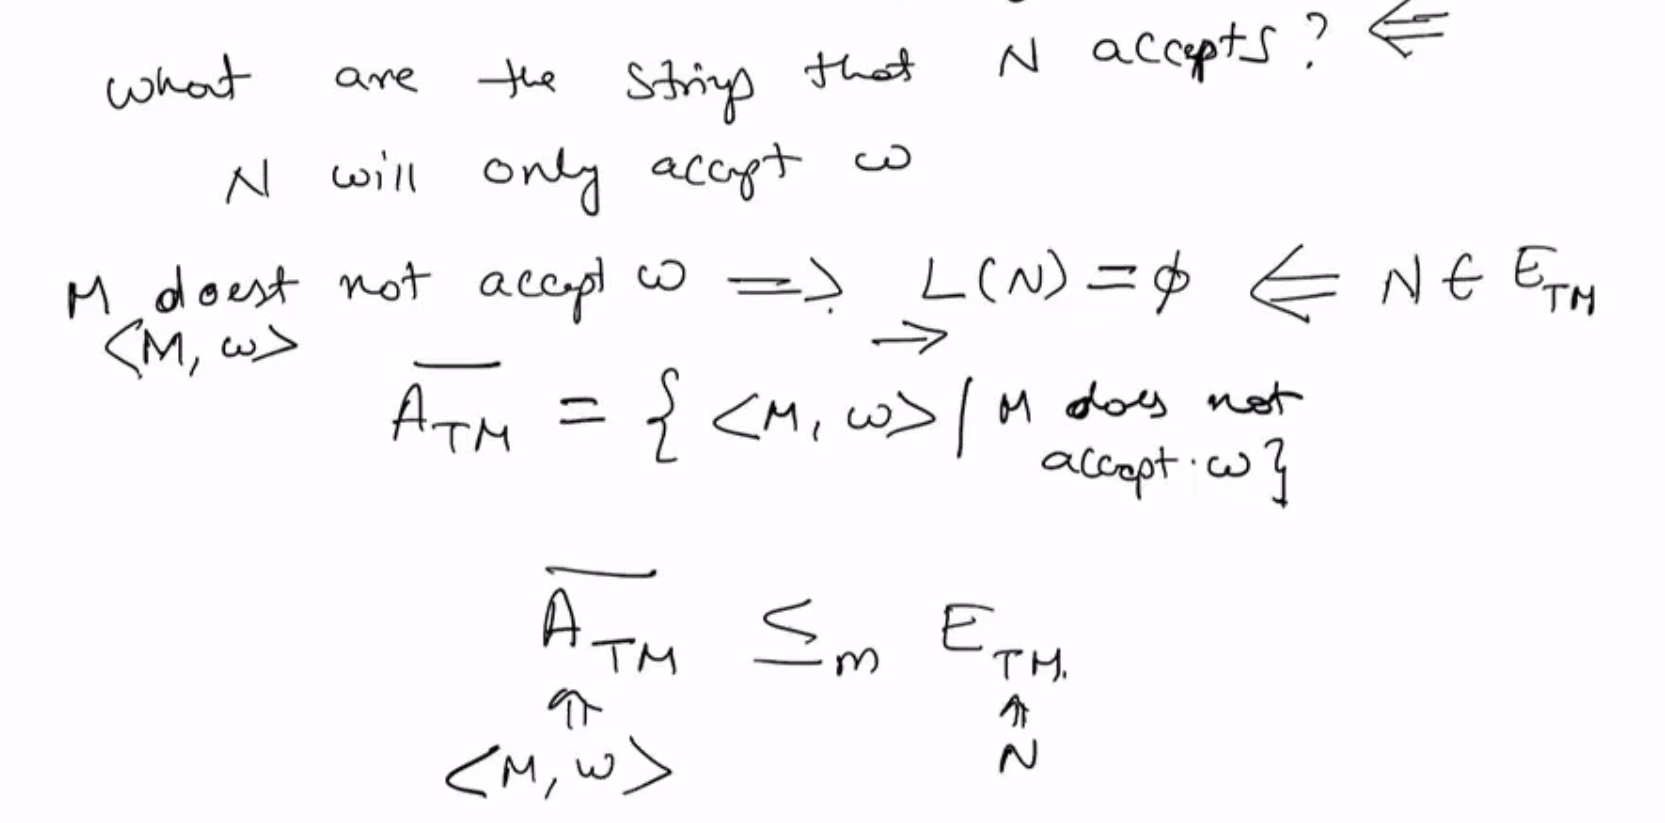 what are the strings that N accepts? ⇐
N will only accept ω
M doest not accept ω ⟹ L(N) = ϕ ⟸ N ∈ E_TM
<M, ω> →
\overline{A_TM} = { <M, ω> | M does not
accept ω }
\overline{A_TM} ≤_m E_TM.
⇑ ⇑
<M, ω> N